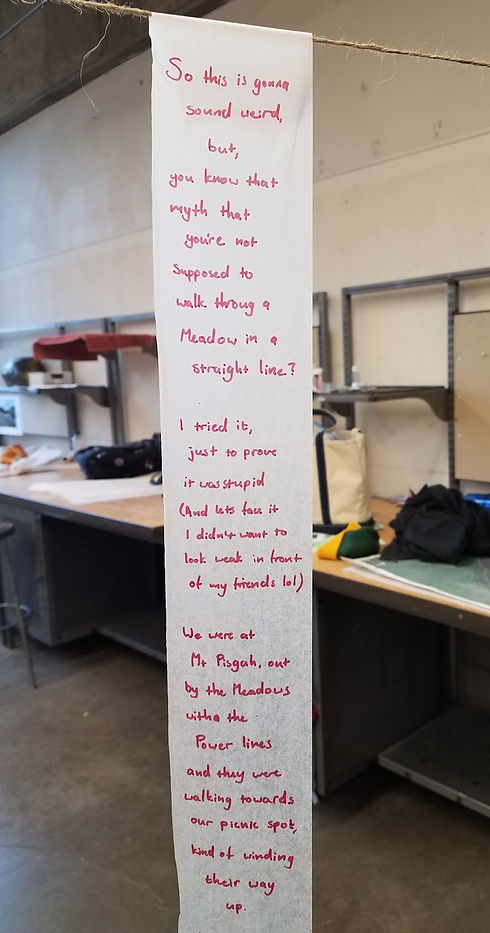 So this is gonna
sound weird,
but,
you know that
myth that
you're not
supposed to
walk throug a
Meadow in a
straight line?
I tried it,
just to prove
it was stupid
(And lets face it
I didn't want to
look weak in front
of my friends lol)
We were at
Mt Pisgah, out
by the Meadows
witha the
Power lines
and they were
walking towards
our picnic spot,
kind of winding
their way
up.